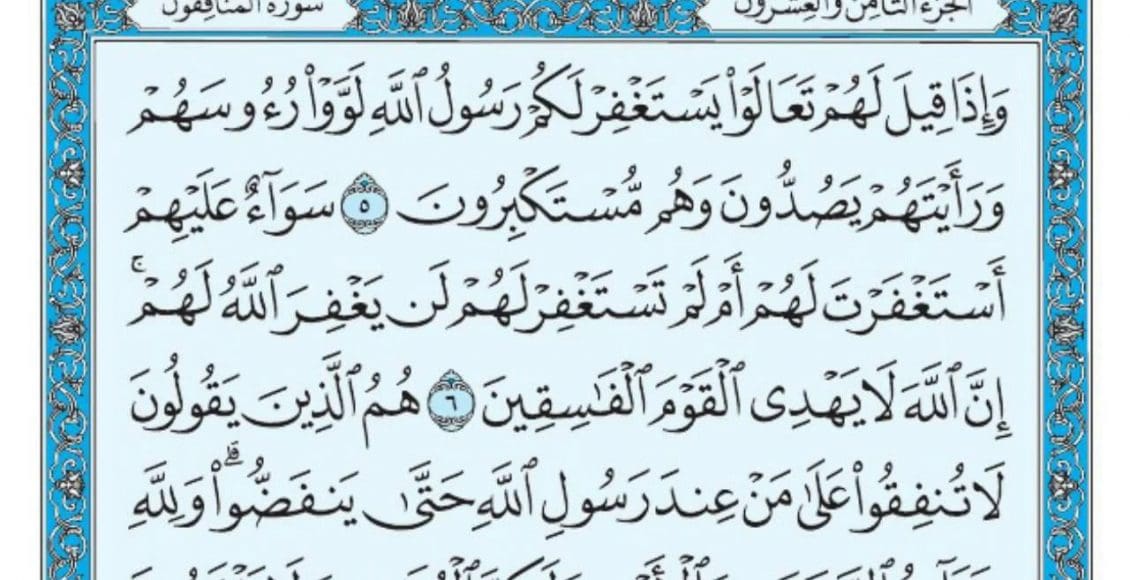 سورة المنافقون
الجزء الثامن والعشرون
وَإِذَا قِيلَ لَهُمۡ تَعَالَوۡاْ يَسۡتَغۡفِرۡ لَكُمۡ رَسُولُ ٱللَّهِ لَوَّوۡاْ رُءُوسَهُمۡ
وَرَأَيۡتَهُمۡ يَصُدُّونَ وَهُم مُّسۡتَكۡبِرُونَ ٥ سَوَآءٌ عَلَيۡهِمۡ
أَسۡتَغۡفَرۡتَ لَهُمۡ أَمۡ لَمۡ تَسۡتَغۡفِرۡ لَهُمۡ لَن يَغۡفِرَ ٱللَّهُ لَهُمۡۚ
إِنَّ ٱللَّهَ لَا يَهۡدِي ٱلۡقَوۡمَ ٱلۡفَٰسِقِينَ ٦ هُمُ ٱلَّذِينَ يَقُولُونَ
لَا تُنفِقُواْ عَلَىٰ مَنۡ عِندَ رَسُولِ ٱللَّهِ حَتَّىٰ يَنفَضُّواْۗ وَلِلَّهِ